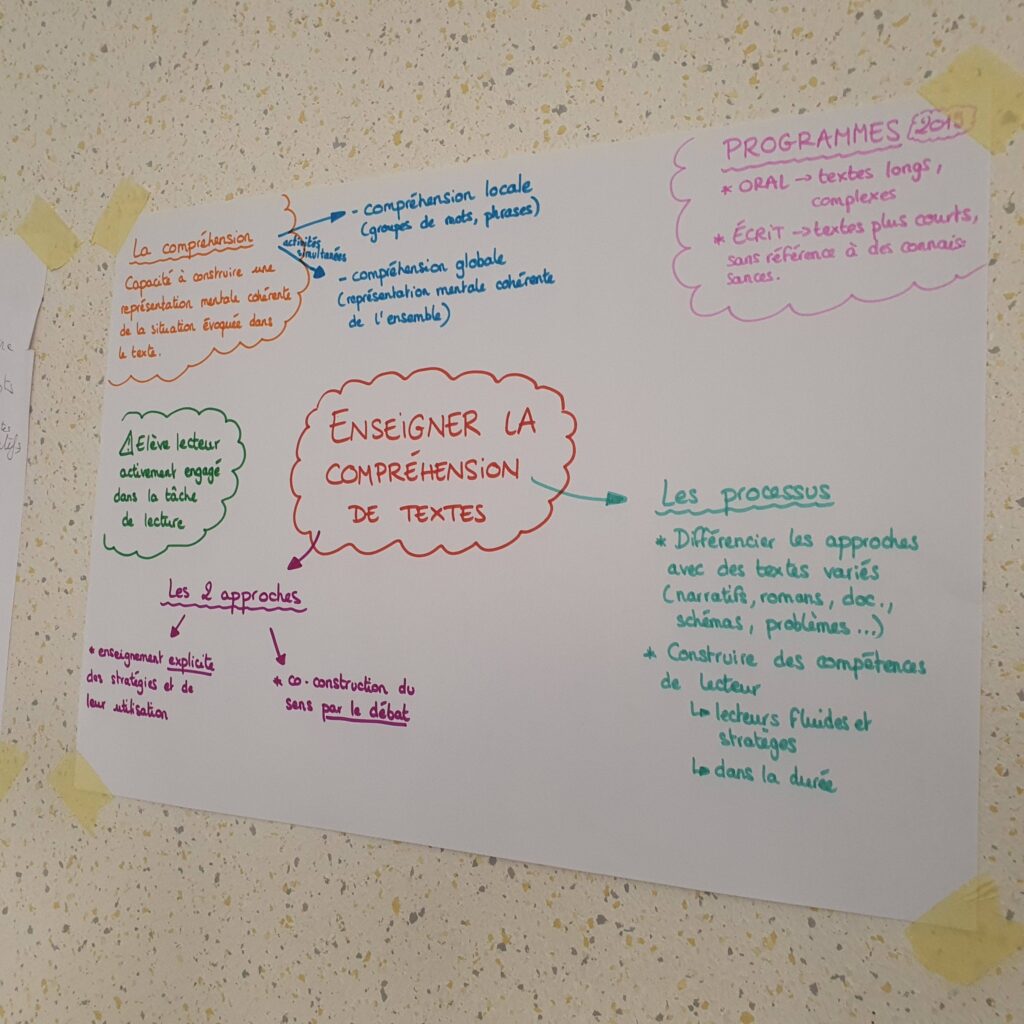 La compréhension
Capacité à construire une
représentation mentale cohérente
de la situation évoquée dans
le texte.
activités
simultanées
- compréhension locale
(groupes de mots, phrases)
- compréhension globale
(représentation mentale cohérente
de l'ensemble)
PROGRAMMES
* ORAL → textes longs,
complexes
* ÉCRIT → textes plus courts,
sans référence à des connais-
sances.
⚠ Elève lecteur
activement engagé
dans la tâche
de lecture
ENSEIGNER LA
COMPRÉHENSION
DE TEXTES
Les 2 approches
* enseignement explicite
des stratégies et de
leur utilisation
* co-construction du
sens par le débat
Les processus
* Différencier les approches
avec des textes variés
(narratifs, romans, doc.,
schémas, problèmes...)
* Construire des compétences
de lecteur
↳ lecteurs fluides et
stratèges
↳ dans la durée